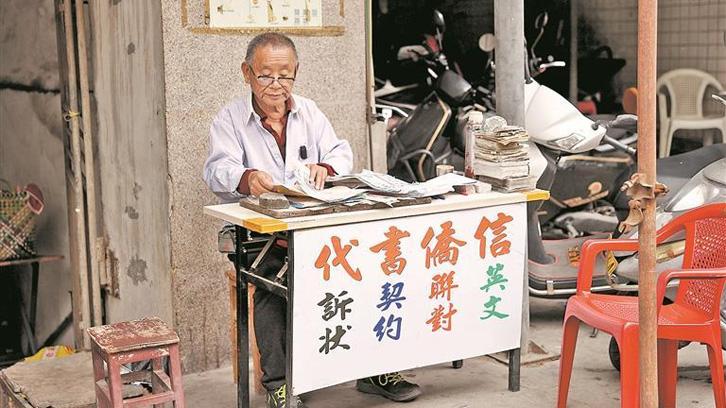 代書僑信
訴状
契約
聯對
英文